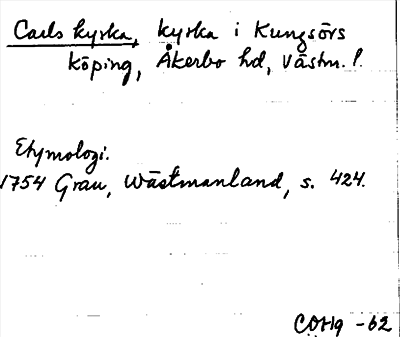 Carls kyrka, kyrka i Kungsörs
köping, Åkerbo hd, Västm. l.
Etymologi.
1754 Grau, Wästmanland, s. 424.
COHg -62